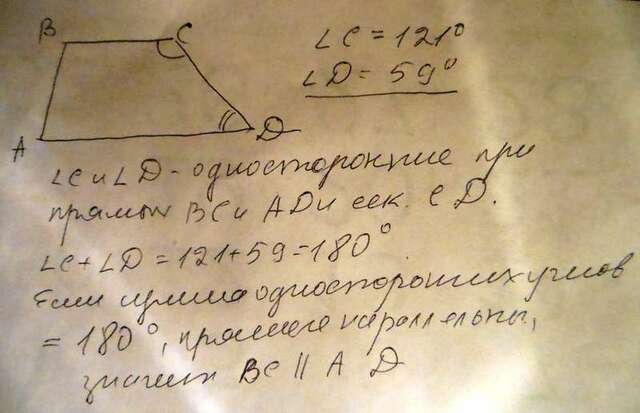 B C
A D
∠C = 121°
∠D = 59°
∠C и ∠D - односторонние при
прямых BC и AD и сек. CD.
∠C + ∠D = 121 + 59 = 180°
Если сумма односторонних углов
= 180°, прямые параллельны,
значит BC || AD